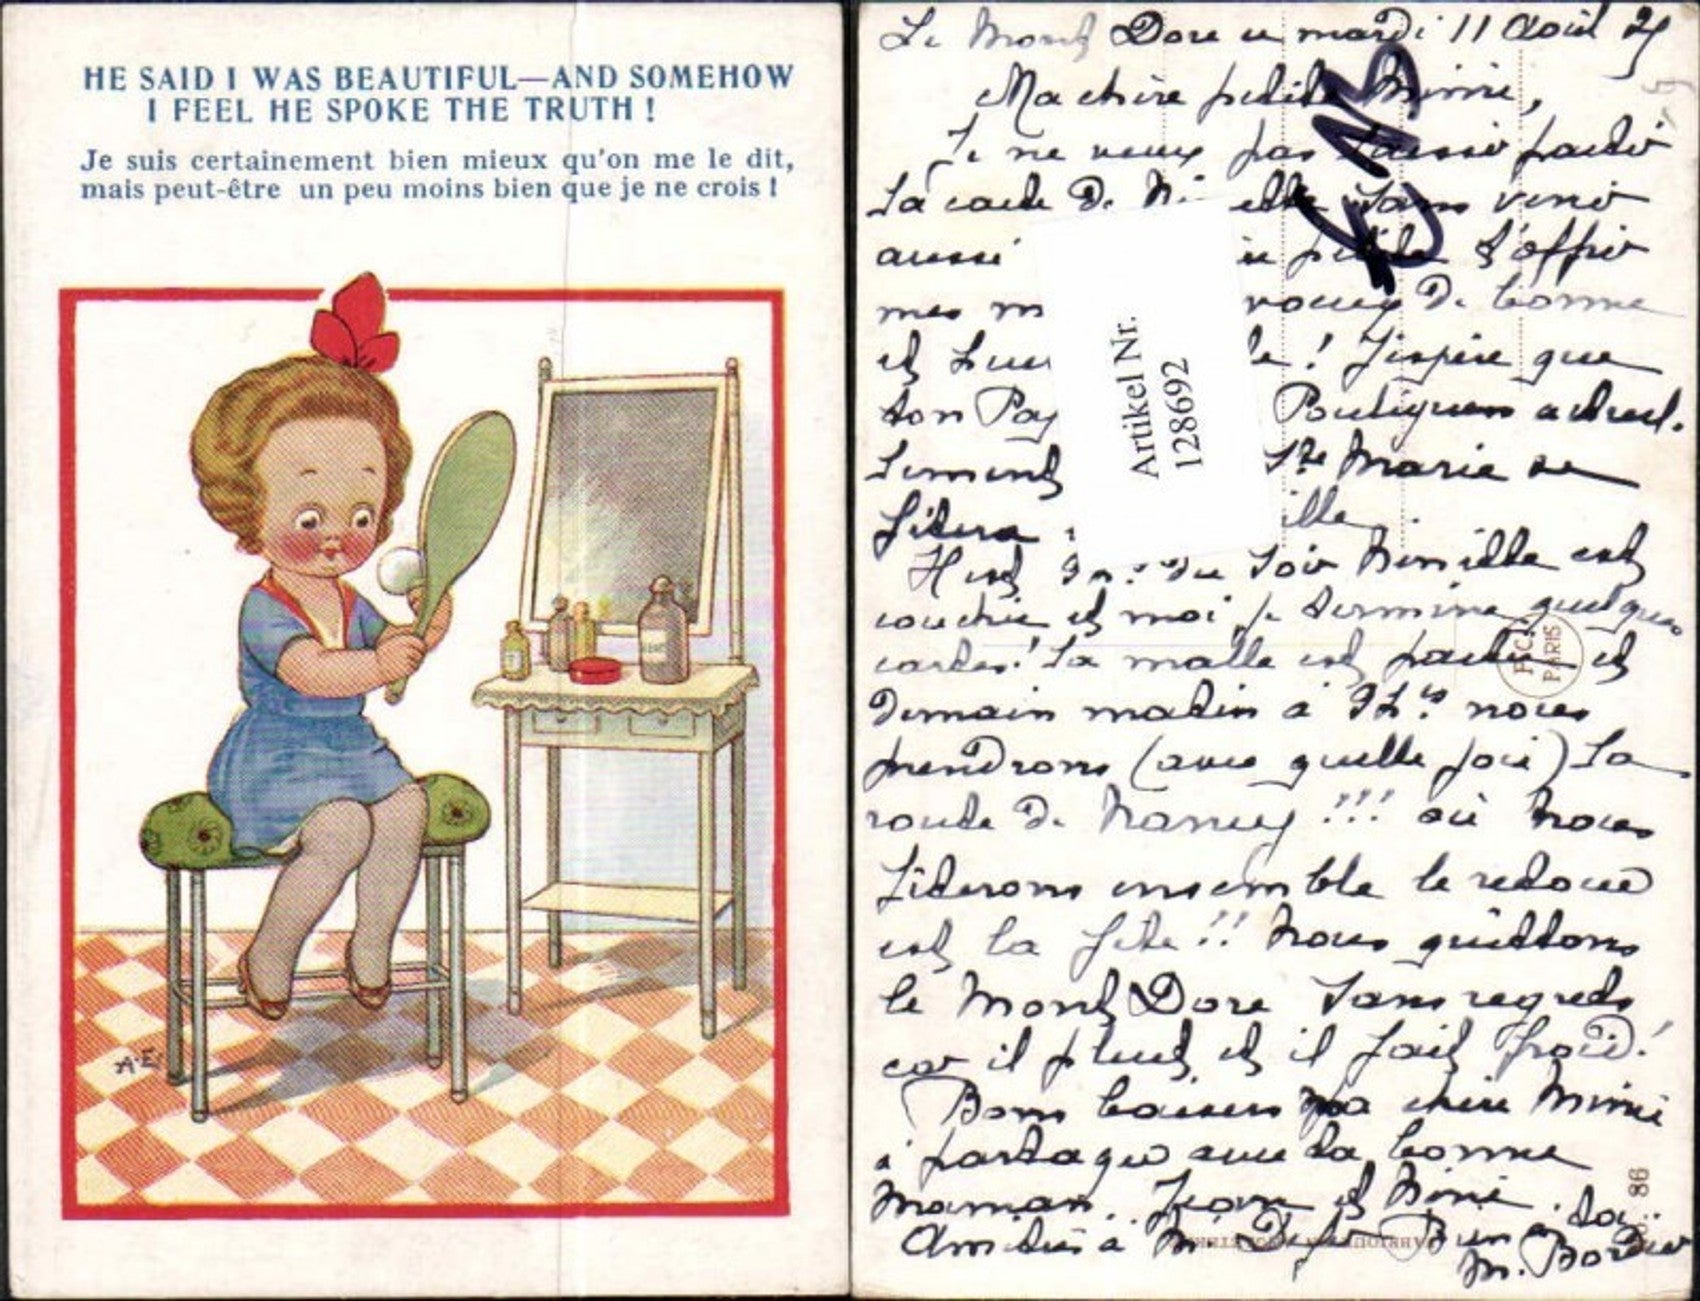 HE SAID I WAS BEAUTIFUL—AND SOMEHOW
I FEEL HE SPOKE THE TRUTH !
Je suis certainement bien mieux qu'on me le dit,
mais peut-être un peu moins bien que je ne crois !
A.E.
Le Mont Dore ce mardi 11 Août 25
Ma chère petite Mimie,
Je ne veux pas laisser partir
la carte de Ni elle sans venir
aussi petite t'offrir
mes voeux de bonne
et ! J'espère que
ton
Ste Marie se
fêtera ille
Il est du soir Ninette est
couchée et moi je termine quelques
cartes! La malle est partie et
demain matin à nous
prendrons (avec quelle joie) la
route de Nancy !!! où nous
fêterons ensemble le retour
et la fête !! Nous quittons
le Mont Dore sans regrets
car il pleut et il fait froid!
Bons baisers ma chère Mimie
à partager avec ta bonne
Maman. Jean et Mimi
Amitiés à
Artikel Nr.
128692
F.C.
PARIS
86